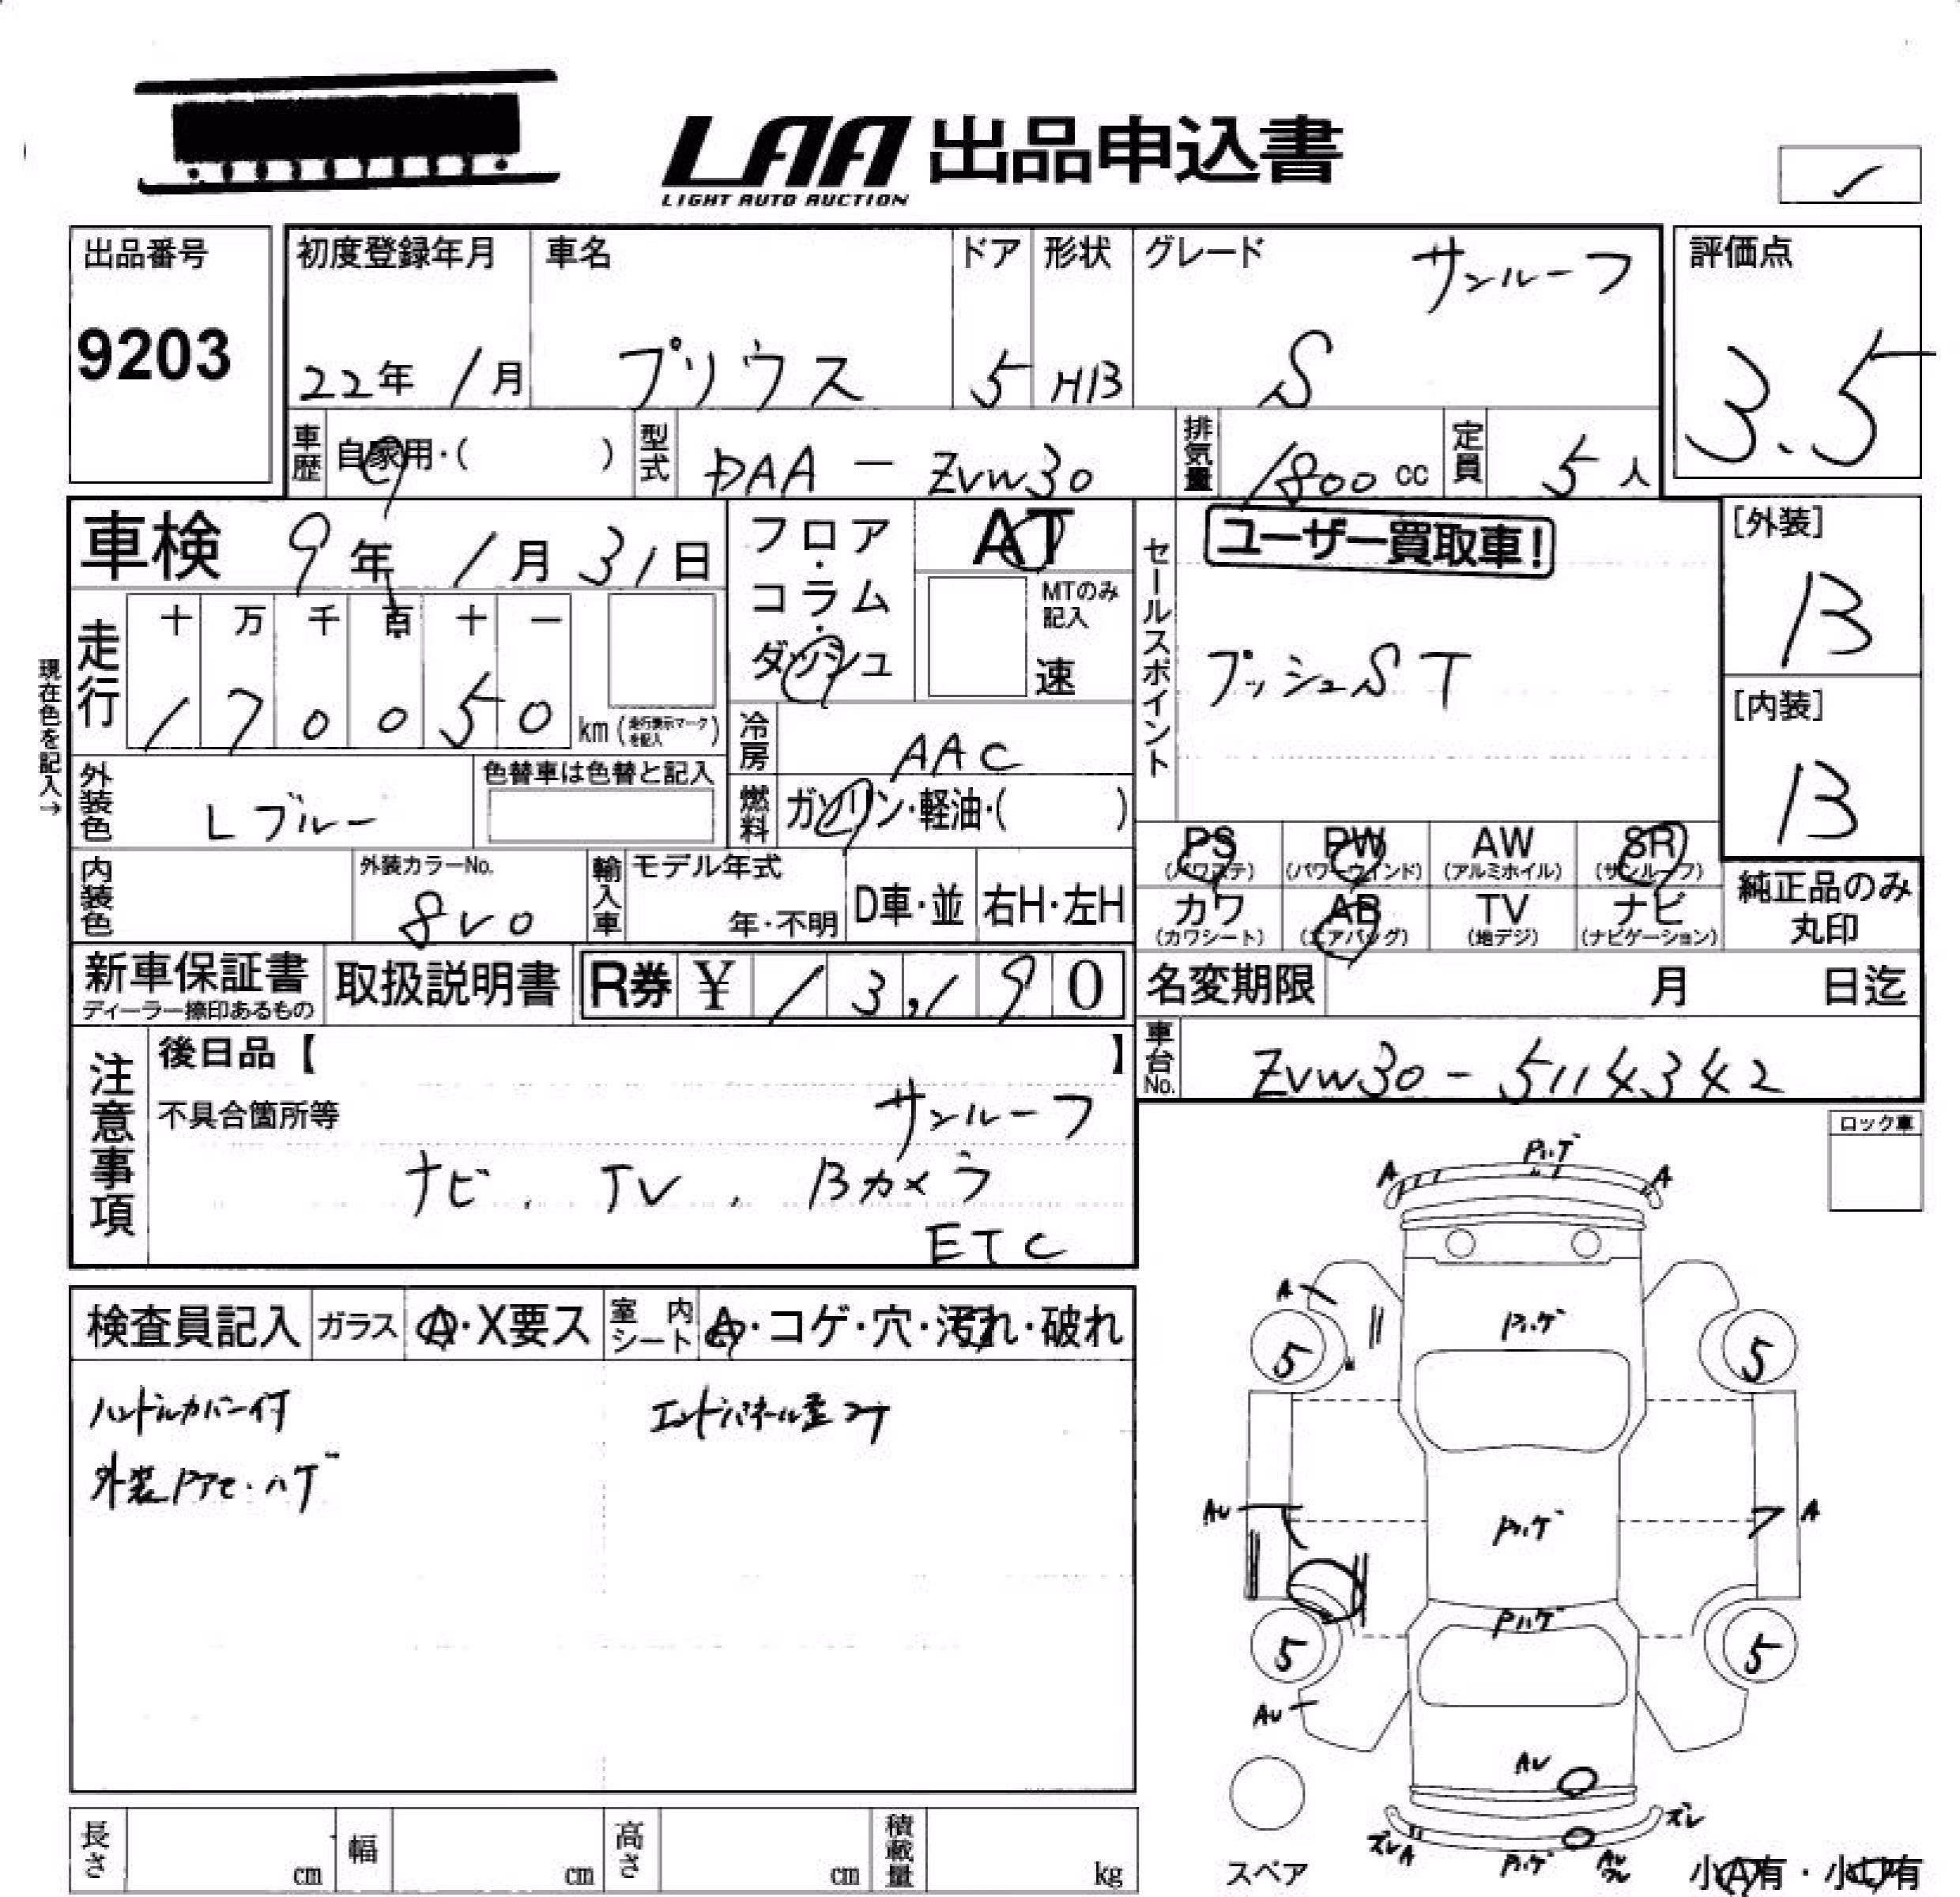 LAA 出品申込書
LIGHT AUTO AUCTION
出品番号
9203
初度登録年月
22年 1月
車名
プリウス
ドア
5
形状
HB
グレード
サンルーフ
S
評価点
3.5
車歴
自家用・( )
型式
DAA - ZVW30
排気量
1800 cc
定員
5 人
車検 9年 1月 31日
フロア・コラム・ダッシュ
AT
MTのみ記入
速
セールスポイント
ユーザー買取車!
プッシュST
[外装]
B
[内装]
B
現在色を記入→
走行
十 万 千 百 十 一
1 7 0 0 5 0 km (走行表示マークを記入)
冷房
AAC
外装色
Lブルー
色替車は色替と記入
燃料
ガソリン・軽油・( )
PS (パワステ)
PW (パワーウィンド)
AW (アルミホイル)
SR (サンルーフ)
カワ (カワシート)
AB (エアバッグ)
TV (地デジ)
ナビ (ナビゲーション)
純正品のみ丸印
内装色
外装カラーNo.
8V0
輸入車
モデル年式
年・不明
D車・並
右H・左H
新車保証書
ディーラー捺印あるもの
取扱説明書
R券 ¥ 13,190
名変期限 月 日迄
車台No.
ZVW30-5114342
注意事項
後日品【 】
不具合箇所等
サンルーフ
ナビ. TV. Bカメラ
ETC
ロック車
検査員記入
ガラス
A・X要ス
室内シート
A・コゲ・穴・汚れ・破れ
ハンドルカバー付
エンドパネル歪コテ
A
Pハゲ
A
A
Pハゲ
5
5
AU
Pハゲ
A
Pハゲ
5
5
AU
AU
ズレ
ズレA
Pハゲ
スペア
小A有・小U有
長さ cm
幅 cm
高さ cm
積載量 kg